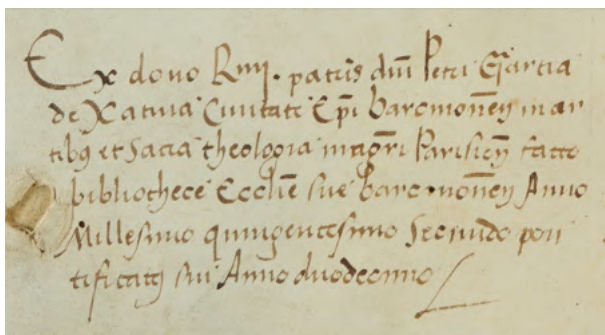 Ex dono Rmi. patris dni Petri Garcia
de Xatiua Ciuitate Epi barcinonen in ar
tibus et Sacra theologia magri Parisien facto
bibliothece Ecclie sue barcinonen Anno
Millesimo quingentesimo Secundo pon
tificatus sui Anno duodecimo